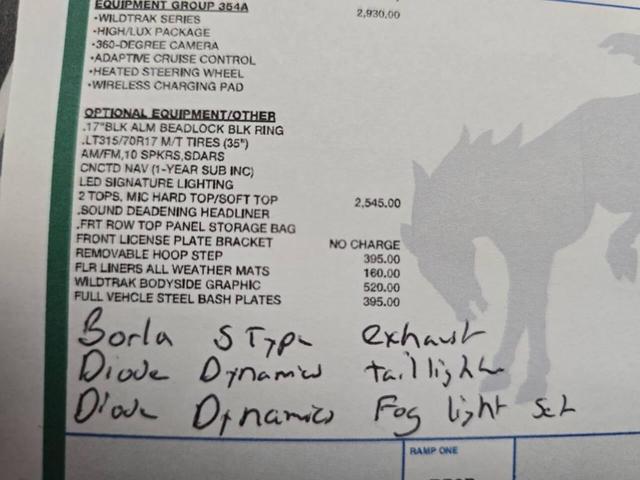 EQUIPMENT GROUP 354A 2,930.00
•WILDTRAK SERIES
•HIGH/LUX PACKAGE
•360-DEGREE CAMERA
•ADAPTIVE CRUISE CONTROL
•HEATED STEERING WHEEL
•WIRELESS CHARGING PAD
OPTIONAL EQUIPMENT/OTHER
.17"BLK ALM BEADLOCK BLK RING
.LT315/70R17 M/T TIRES (35")
AM/FM,10 SPKRS,SDARS
CNCTD NAV (1-YEAR SUB INC)
LED SIGNATURE LIGHTING
2 TOPS, MIC HARD TOP/SOFT TOP 2,545.00
.SOUND DEADENING HEADLINER
.FRT ROW TOP PANEL STORAGE BAG
FRONT LICENSE PLATE BRACKET NO CHARGE
REMOVABLE HOOP STEP 395.00
FLR LINERS ALL WEATHER MATS 160.00
WILDTRAK BODYSIDE GRAPHIC 520.00
FULL VEHCLE STEEL BASH PLATES 395.00
Borla S Type exhaust
Diode Dynamics taillights
Diode Dynamics Fog light set
RAMP ONE